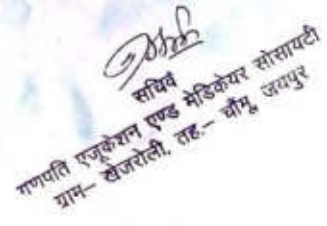 सचिव
गणपति एजूकेशन एण्ड मेडिकेयर सोसायटी
ग्राम– खेजरोली, तह.– चौमू, जयपुर